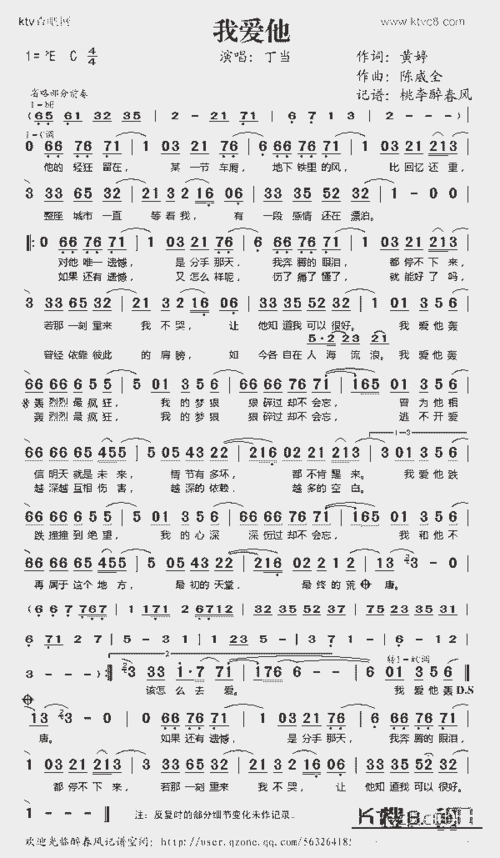 ktv www.ktvc8.com
我爱他
1=♭E C 4/4 演唱：丁当 作词：黄婷
作曲：陈威全
省略部分前奏 记谱：桃李醉春风
(65 61 32 35 | 2 - 21 71 | 6 7 1 3 | 2 - - -)
0 66 76 71 | 1 03 21 76 | 6 66 76 71 | 1 03 21 213
他的 轻狂 留在， 某 一节 车厢， 地下 铁里 的风， 比 回忆 还 重，
3 33 65 32 | 21 3 2 16 06 | 33 35 52 32 | 1 - 0 0
整座 城市 一直 等着我， 有 一段 感情 还在 漂泊。
‖: 0 66 76 71 | 1 03 21 76 | 6 66 76 71 | 1 03 21 213
对他 唯一 遗憾， 是 分手 那天， 我奔 腾的 眼泪， 都 停不 下 来，
如果 还有 遗憾， 又 怎么 样呢， 伤了 痛了 懂了， 就 能好 了 吗，
3 33 65 32 | 21 3 2 16 06 | 33 35 52 32 | 1 01 3 5 6
若那 一刻 重来 我 不 哭， 让 他知 道我 可以 很好。 我 爱 他 轰
5·2 23 21
曾经 依靠 彼此 的 肩膀， 如 今各 自在 人 海 流 浪。 我 爱 他 轰
66 66 6 5 5 | 5 01 3 5 6 | 66 66 76 71 | 165 01 3 5 6
轰 烈烈 最 疯 狂， 我 的 梦 狠 狠碎 过却 不会 忘， 曾 为 他 相
轰 烈烈 最 疯 狂， 我 的 梦 狠 狠碎 过却 不会 忘， 逃 不 开 爱
66 66 65 455 | 5 05 43 22 | 216 02 21 213 | 3 01 3 5 6
信 明天 就是 未 来， 情 节有 多坏， 都 不肯 醒 来。 我 爱 他 跌
越 深越 互相 伤 害， 越 深的 依赖， 越 多的 空 白。
66 66 6 5 5 | 5 01 3 5 6 | 66 66 76 71 | 165 01 3 5 6
跌 撞撞 到 绝 望， 我 的 心 深 深伤 过却 不会 忘， 我 和 他 不
66 66 65 455 | 5 05 43 22 | 216 02 21 2 | 12 0 0
再 属于 这个 地 方， 最 初的 天堂， 最 终的 荒 唐。
(6 6 7 67 767 | 1 171 2 6712 | 32 35 52 37 | 75 23 35 31
6 71 2 7 | 5 - 3 1 | 1 23 5 - | 6 7 1 3
3 - - -) 3 33 1·7 71 | 176 6 - - | 6 01 3 5 6
该怎 么 去 爱。 我 爱 他 轰 D.S
13 3 - 0 | 0 66 76 71 | 1 03 21 76 | 6 66 76 71
唐。 如果 还有 遗憾， 是 分手 那天， 我奔 腾的 眼泪，
1 03 21 213 | 3 33 65 32 | 21 3 2 16 06 | 33 35 52 32
都 停不 下 来， 若那 一刻 重来 我 不 哭， 让 他知 道我 可以 很好。
1 - - - ‖ 注：反复时的部分细节变化未作记录。
欢迎光临醉春风记谱空间：http://user.qzone.qq.com/56326418